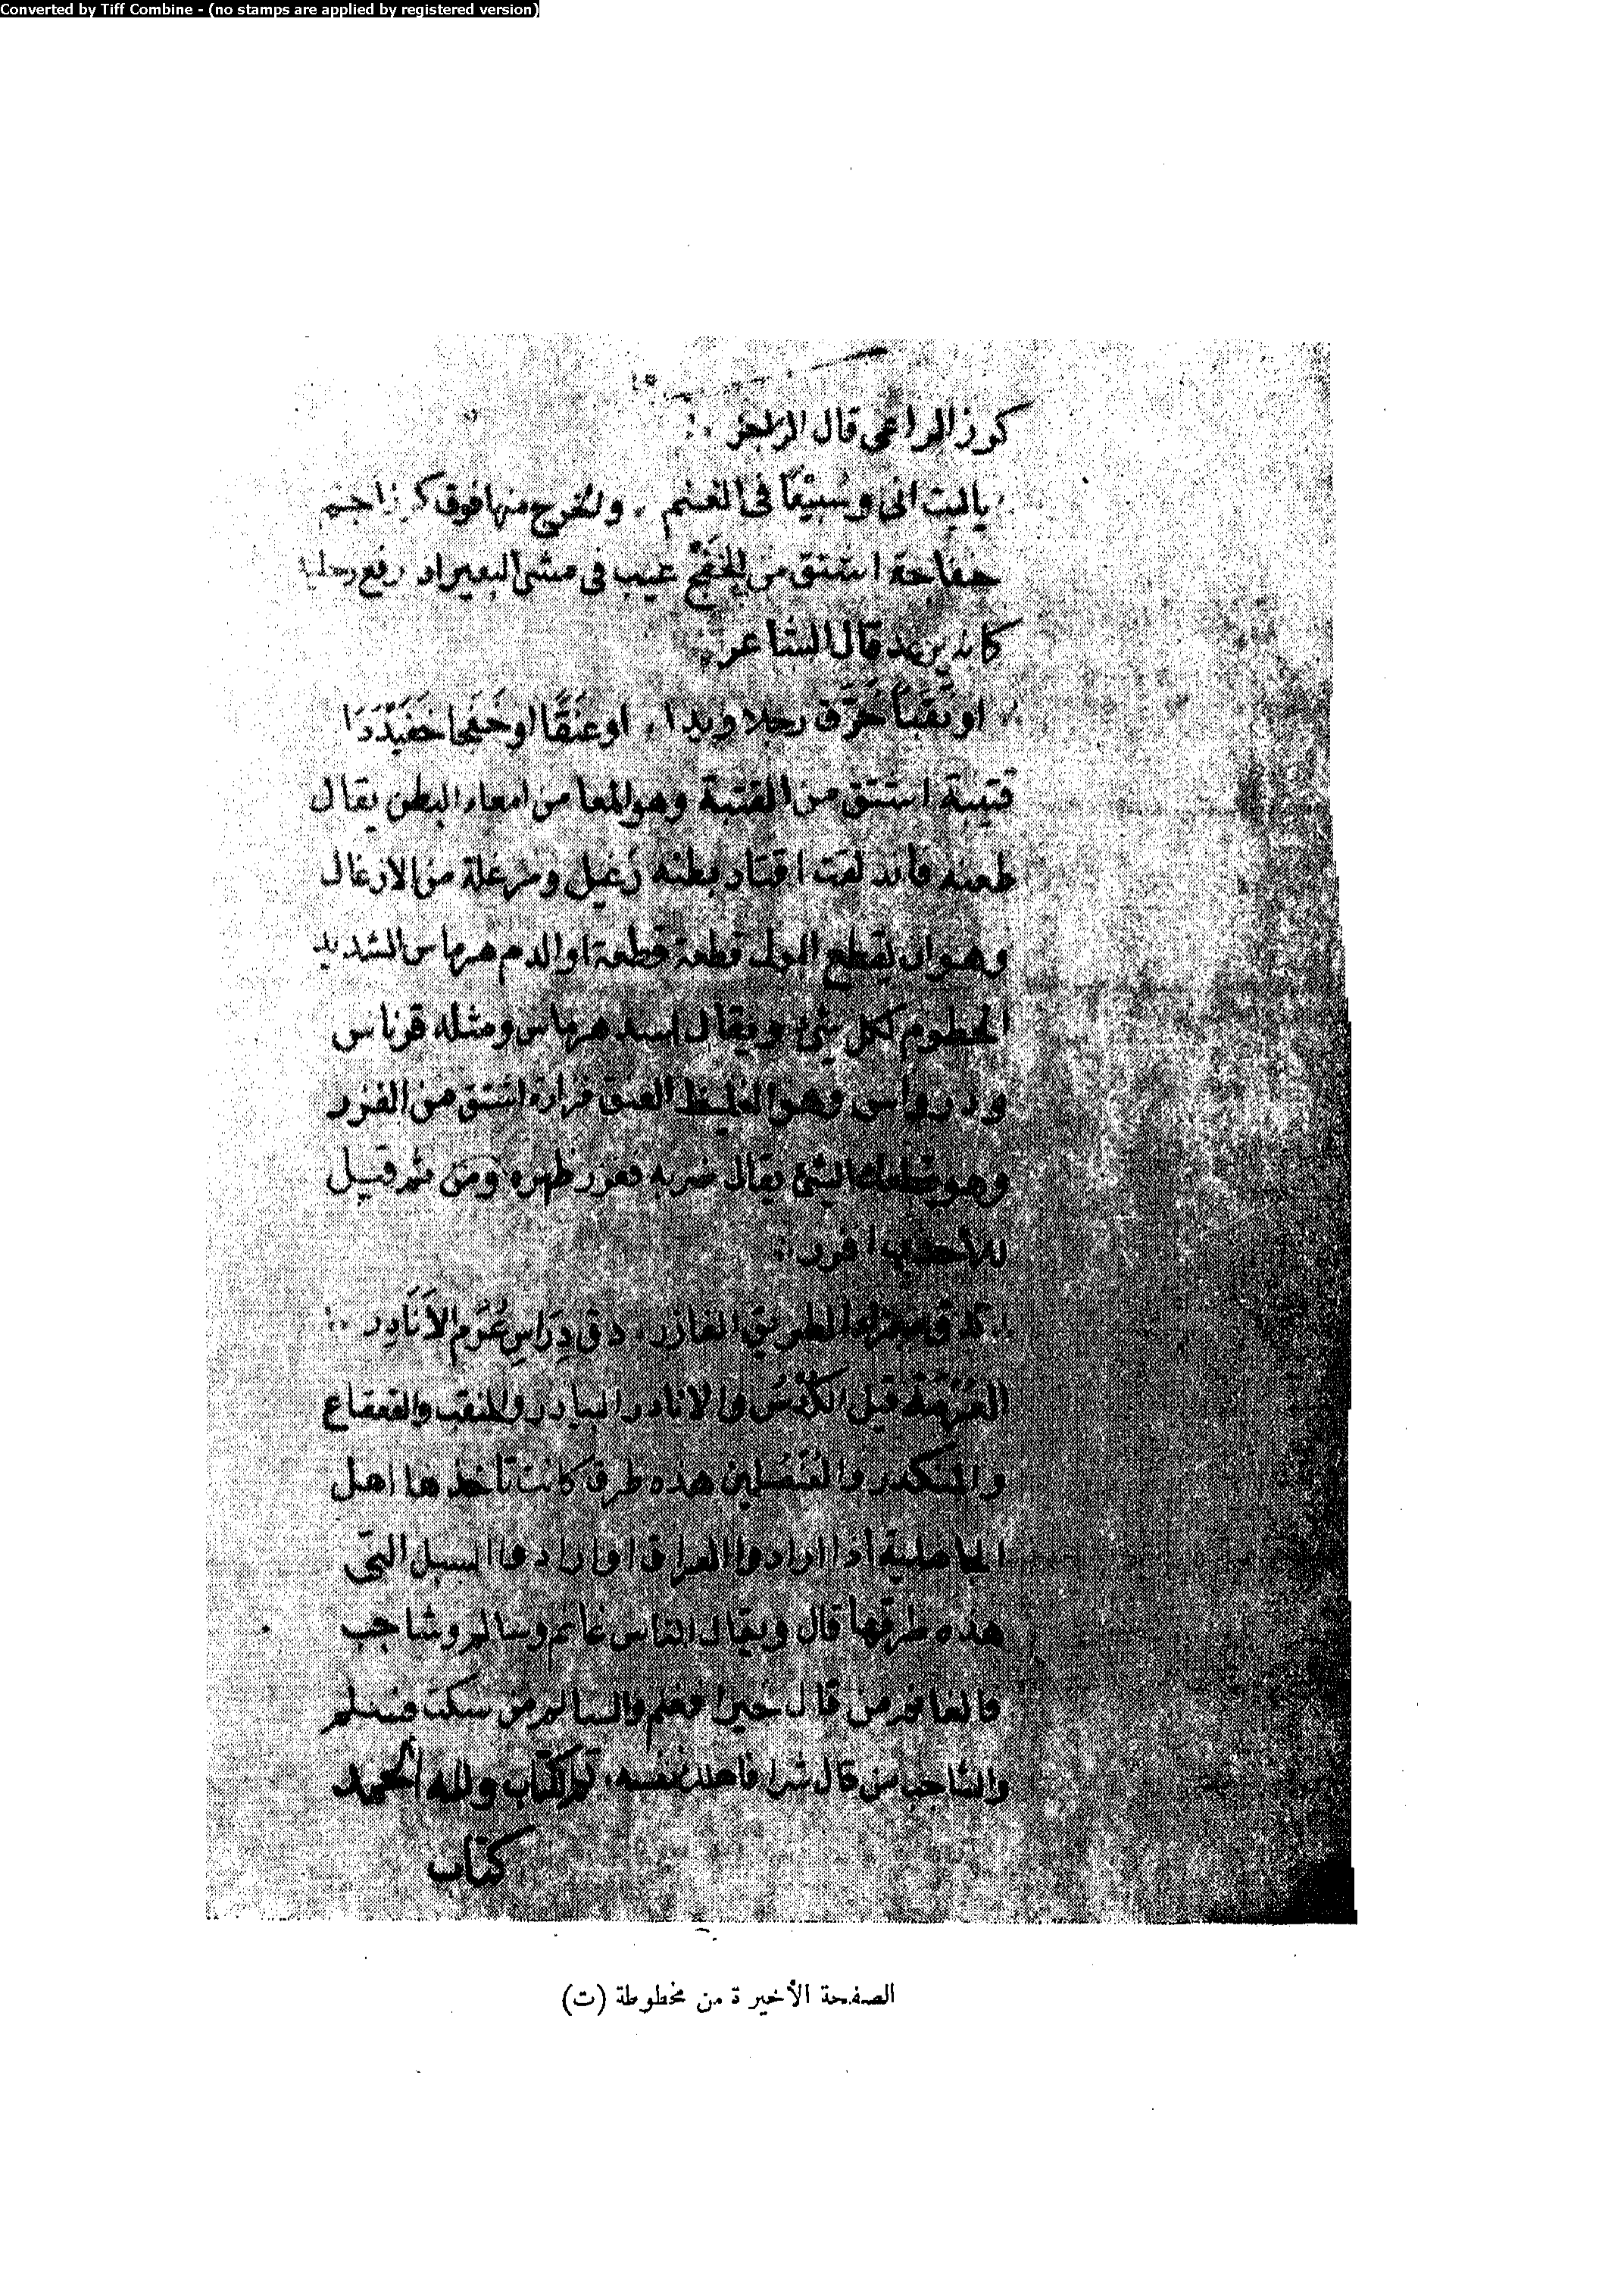 Converted by Tiff Combine - (no stamps are applied by registered version)
كوز الراعى قال الراجز ∴
ياليت انى وسُبيْعًا فى الغنم ، والخرج منها فوق كراز اجم
خفاجة اشتق من الخَفَج عيب فى مشى البعير اذ رفع رجليه
كانه يرعد قال الشاعر ∴
او رجلا ويدا ، او او خفجا خَفَيْدَدَا
قتيبة اشتق من القتبة وهو المعا من امعاء البطن يقال
طعنه فاندلقت اقتاب بطنه زغيل ومزغلة من الازغال
وهو ان يقطع البول قطعة قطعة او الدم هرماس الشديد
الخطوم لكل شئ ويقال اسد هرماس ومثله قرناس
ودرواس وهو الغليظ العنق فزارة اشتق من الفزر
وهو قطعك الشئ يقال ضربه ففزر ظهره ومن ثم قيل
للاحدب افزر ∴
الطريق الفازر ، دق دِرَاسِ عُرَمِ الاَنَادِر ∴
العُرمَة قبل الكُدْسُ والانادر البيادر والمنقب والقعقاع
والمنكدر والعنصلين هذه طرق كانت تأخذها اهل
الجاهلية اذا ارادوا العراق او ارادوا السبيل التى
هذه طرقها قال ويقال الناس غانم وسالم وشاجب
فالغانم من قال خيرا فغنم والسالم من سكت فسلم
والشاجب من قال شرا فاهلك نفسه ، تم الكتاب ولله الحمد
كتاب
الصفحة الأخيرة من مخطوطة (ت)